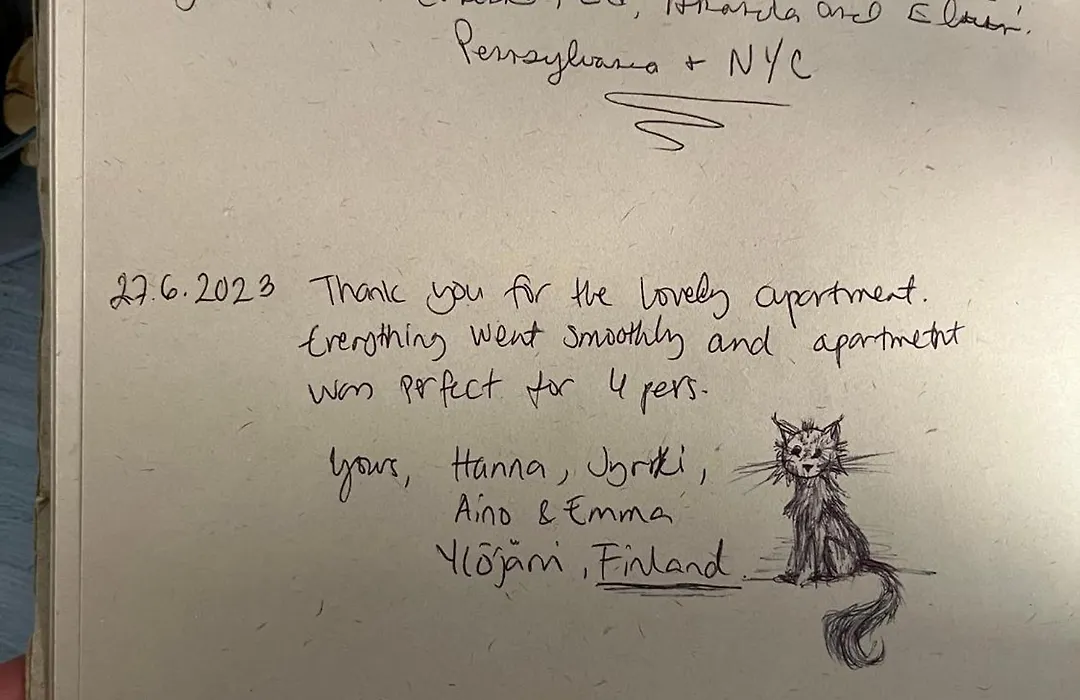 and
Pennsylvania + NYC
27.6.2023 Thank you for the lovely apartment.
Everything went smoothly and apartment
was perfect for 4 pers.
Yours, Hanna, Jyrki,
Aino & Emma
Ylöjärvi, Finland